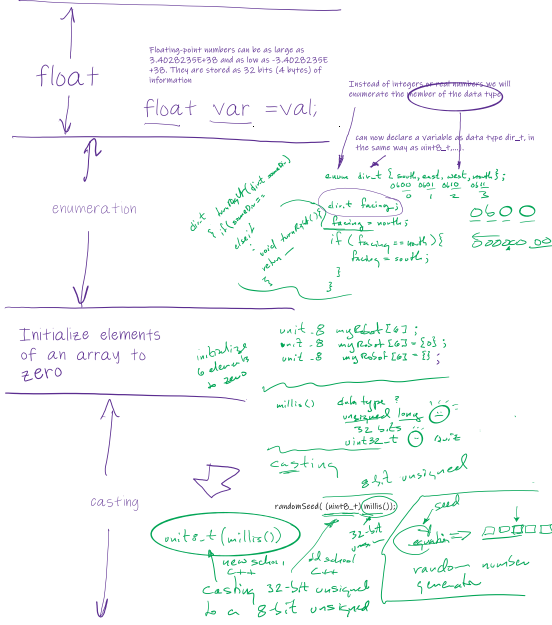 float
Floating-point numbers can be as large as
3.4028235E+38 and as low as -3.4028235E
+38. They are stored as 32 bits (4 bytes) of
information
float var =val;
Instead of integers or real numbers we will
enumerate the member of the data type
can now declare a variable as data type dir_t, in
the same way as uint8_t,...).
enumeration
enum dir_t { south, east, west, north };
0b00 0b01 0b10 0b11
0 1 2 3
dir_t facing;
facing = north;
if (facing == north) {
facing = south;
}
}
0b00
dir_t turnRight(dir_t
{ if(
else if
void turnRight() {
return
Initialize elements
of an array to
zero
initialize
6 elements
to zero
unit_8 myRobot[6];
unit_8 myRobot[6]={0};
unit_8 myRobot[6]={};
millis() data type ?
unsigned long
32 bits
uint32_t
casting
casting
8bit unsigned
randomSeed( (uint8_t)(millis());
unit8_t(millis())
32-bit
new school
C++
old school
C++
casting 32-bit unsigned
to a 8-bit unsigned
seed
equation
random number
generator